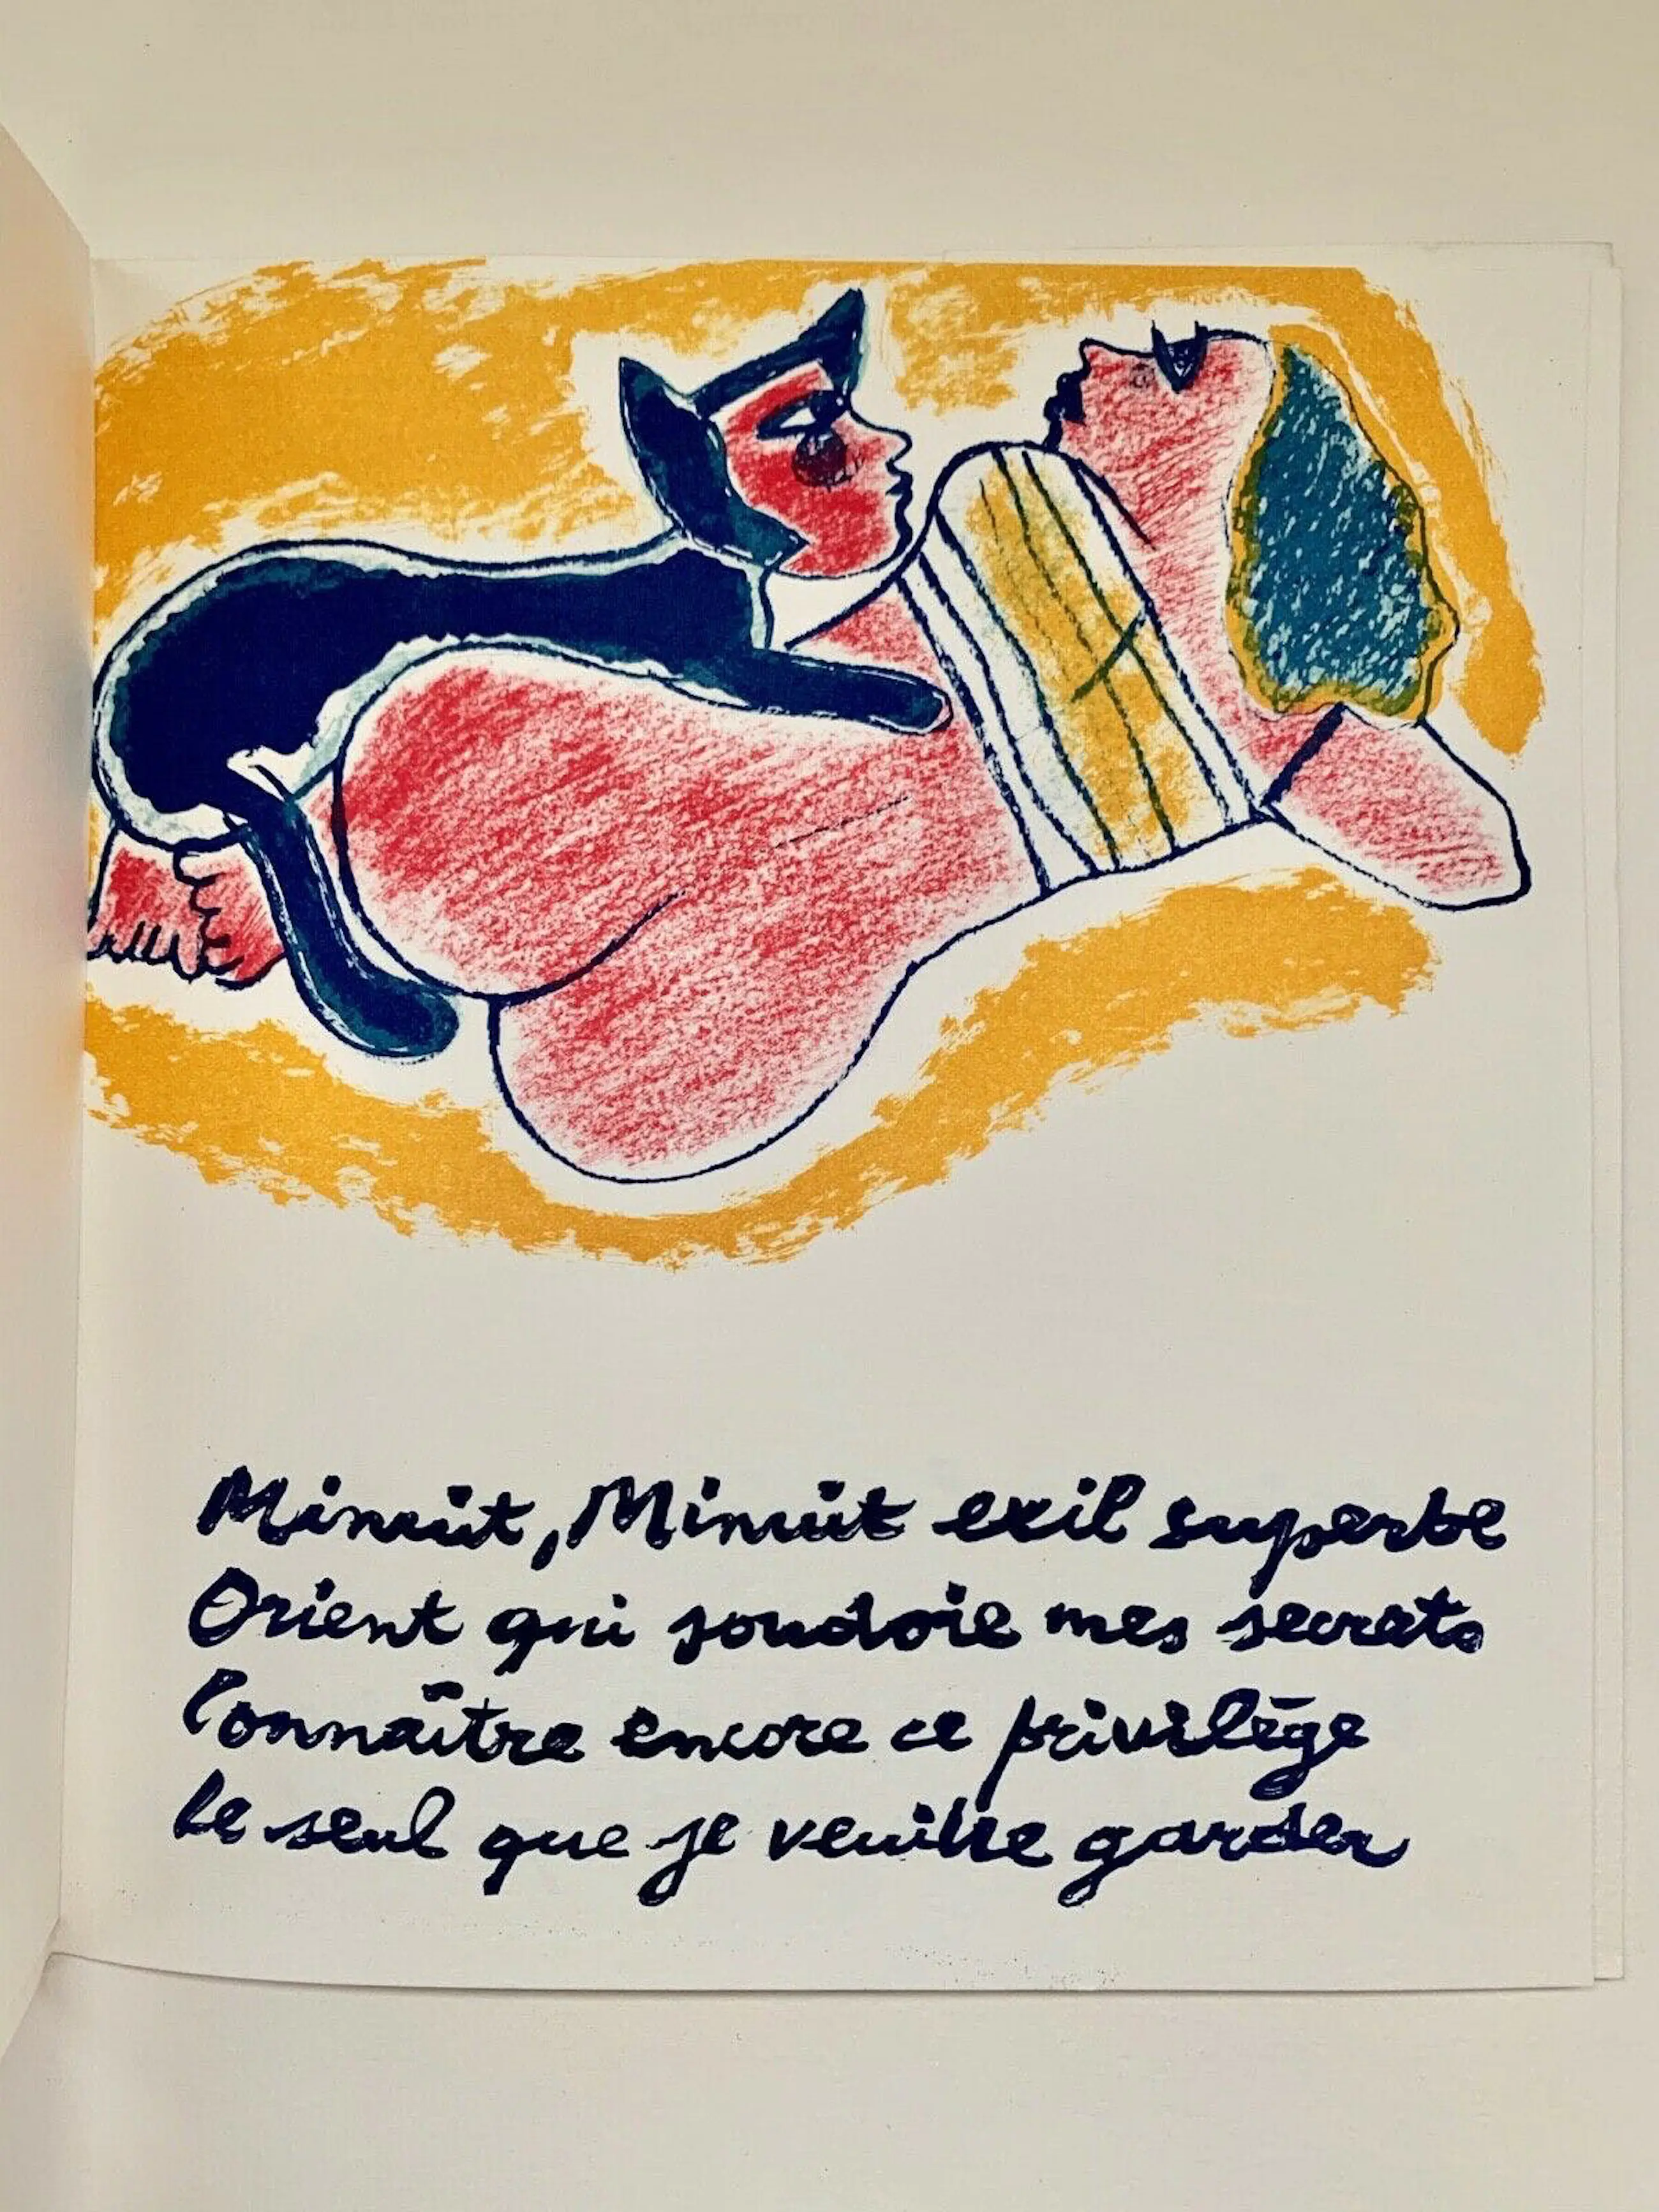 Minuit, Minuit exil superbe
Orient qui soudoie mes secrets
Connaître encore ce privilège
Le seul que je veuille garder